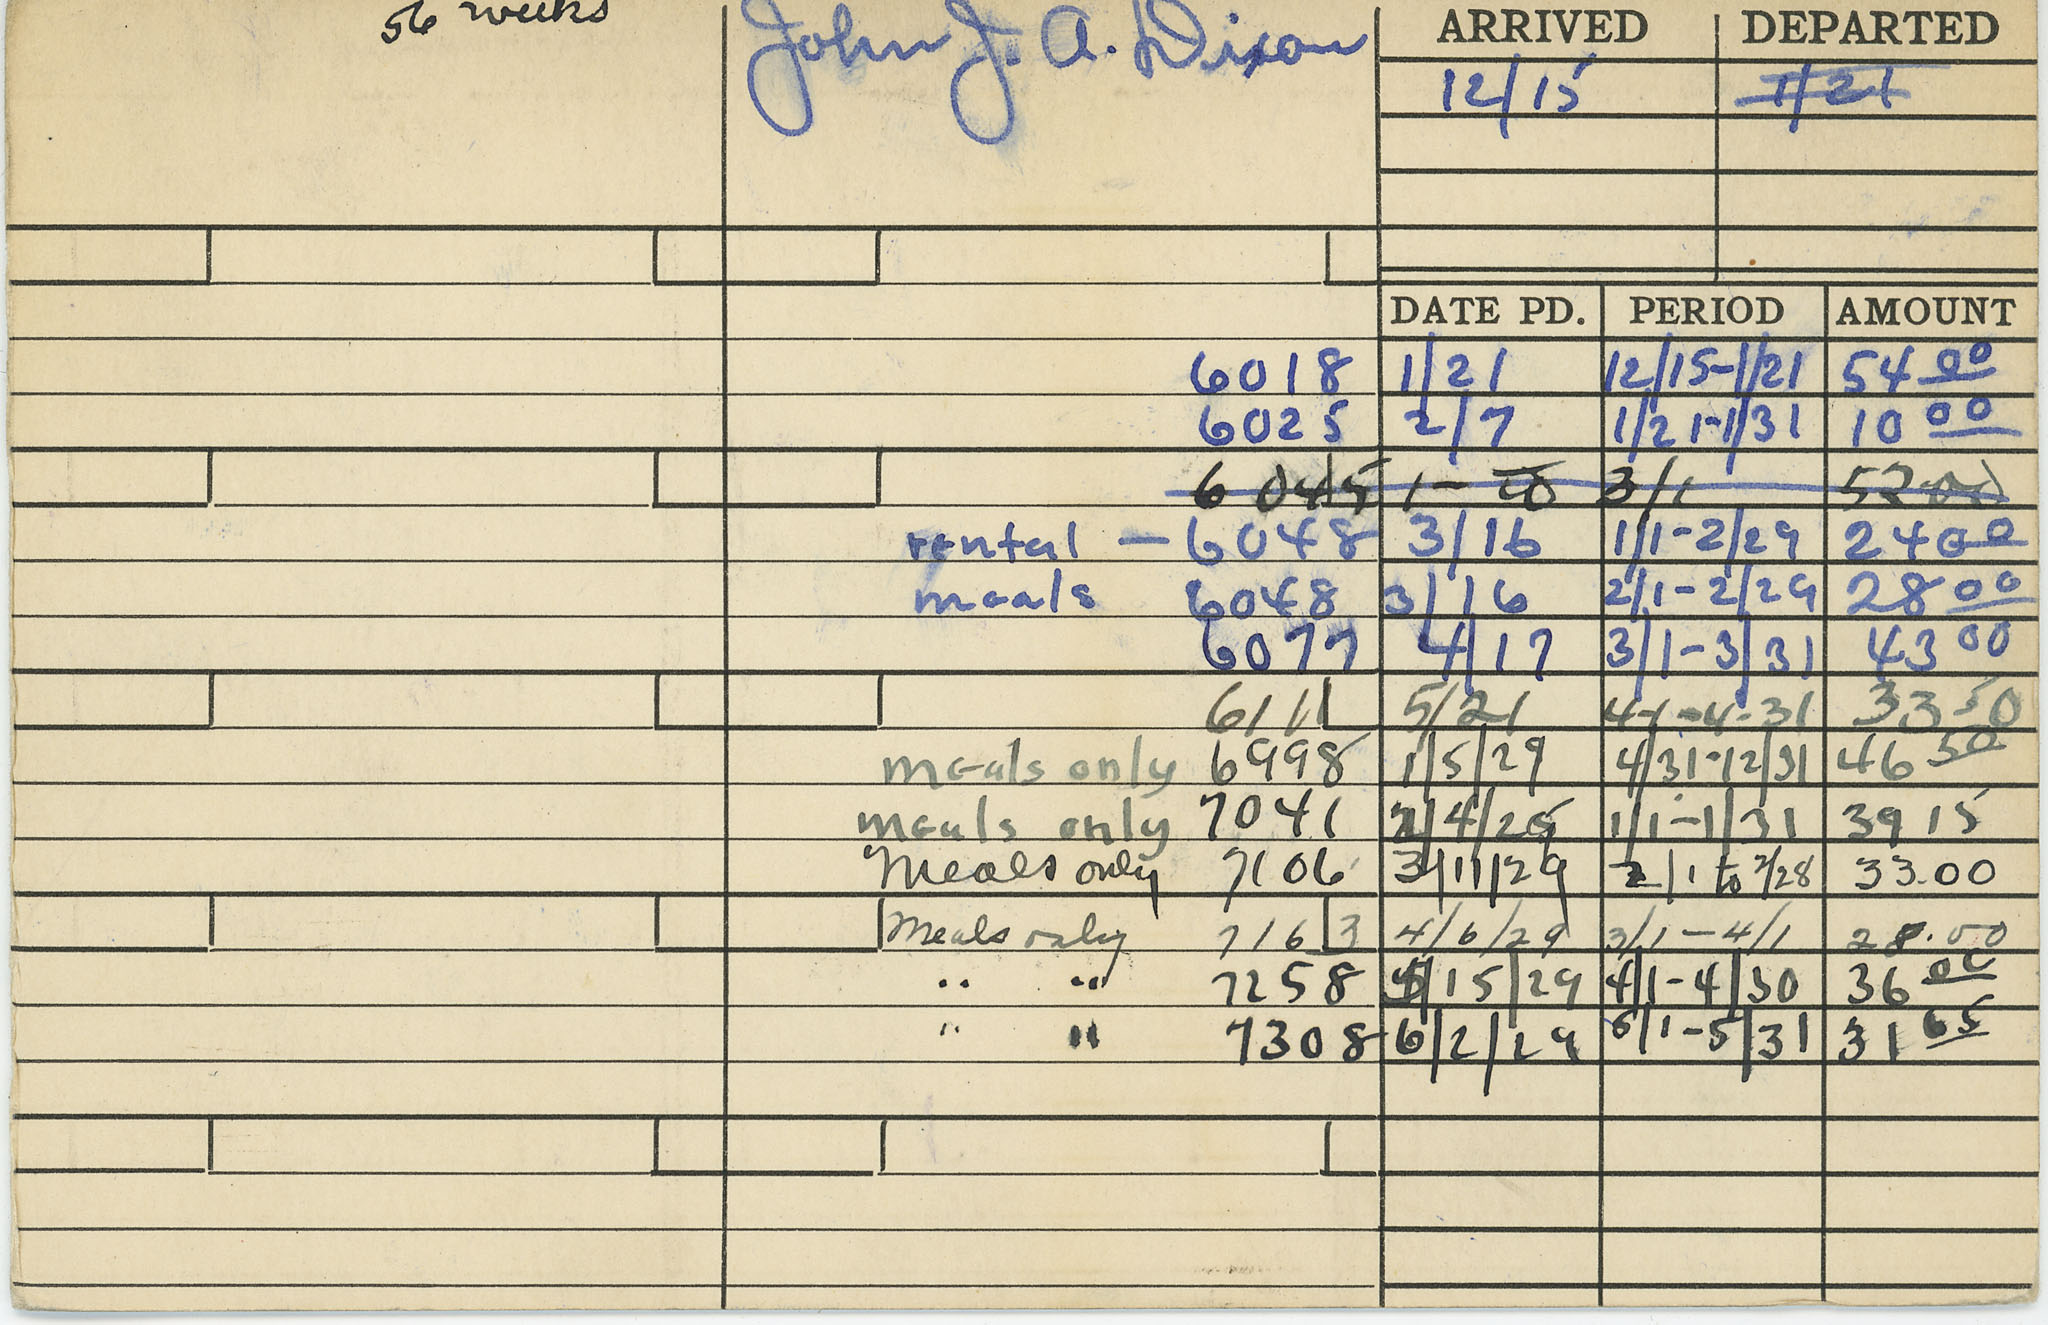 56 weeks
John J. A. Dixon
ARRIVED DEPARTED
12/15 1/21
DATE PD. PERIOD AMOUNT
6018 1/21 12/15-1/21 54 00
6025 2/7 1/21-1/31 10 00
6045 1- 3/1 52 00
rental - 6048 3/16 1/1-2/29 24 00
meals 6048 3/16 2/1-2/29 28 00
6077 4/17 3/1-3/31 43 00
6111 5/21 4-1-4-31 33 50
meals only 6998 1/5/29 4/31-12/31 46 50
meals only 7041 2/4/29 1/1-1/31 39 15
Meals only 7106 3/11/29 2/1 to 2/28 33.00
Meals only 7163 4/6/29 3/1-4/1 28.00
" " 7258 5/15/29 4/1-4/30 36 00
" " 7308 6/2/29 5/1-5/31 31 65